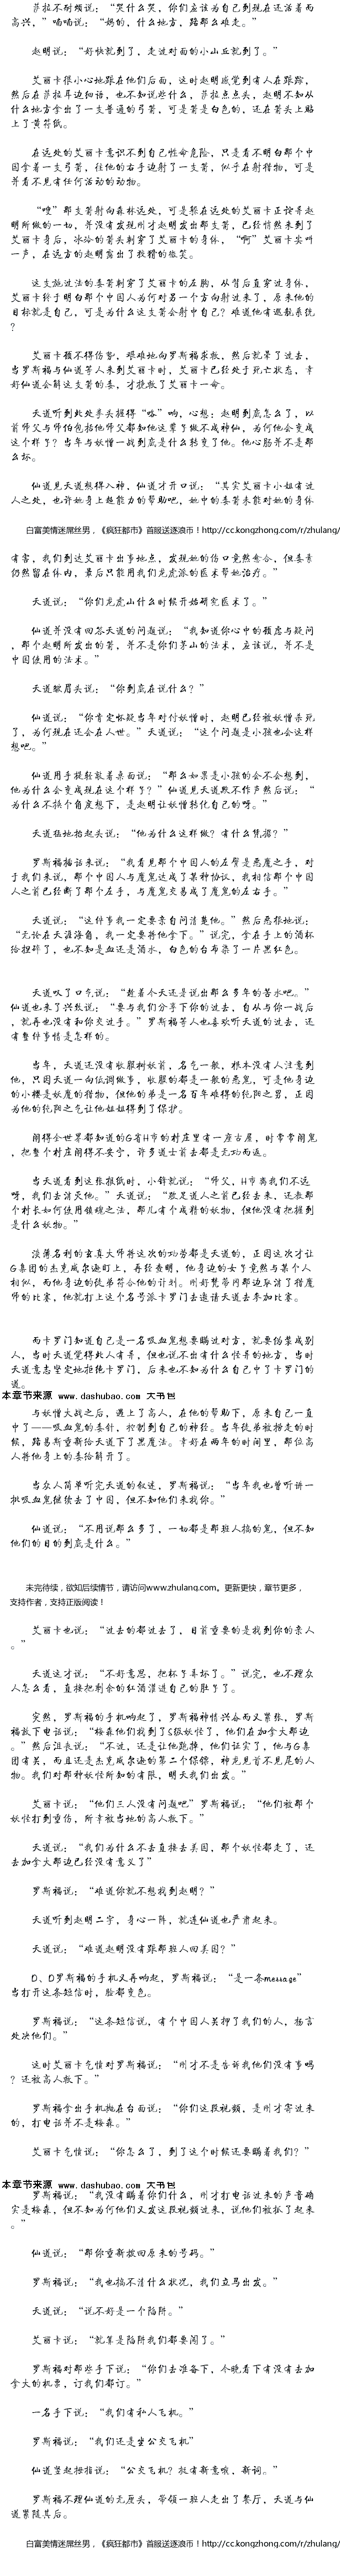 萨拉不耐烦说：“哭什么哭，你们应该为自己到现在还活着而
高兴，”喃喃说：“妈的，什么地方，路那么难走。”
赵明说：“好快就到了，走过对面的小山丘就到了。”
艾丽卡很小心地跟在他们后面，这时赵明感觉到有人在跟踪，
然后在萨拉耳边细语，也不知说些什么，萨拉点点头，赵明不知从
什么地方拿出了一支普通的弓箭，可是箭是白色的，还在箭头上贴
上了黄符纸。
在远处的艾丽卡意识不到自己性命危险，只是看不明白那个中
国拿着一支弓箭，往他的右手边射了一支箭，似乎在射猎物，可是
并看不见有任何活动的动物。
“嗖”那支箭射向森林远处，可是躲在远处的艾丽卡正诧异赵
明所做的一切，并没有发现刚才赵明发出那支箭，已经悄然来到了
艾丽卡身后，冰冷的箭头刺穿了艾丽卡的身体，“啊”艾丽卡尖叫
一声，在远方的赵明露出了狡猾的微笑。
这支施过法的毒箭刺穿了艾丽卡的左胸，从背后直穿过身体，
艾丽卡终于明白那个中国人为何对另一个方向射过来了，原来他的
目标就是自己，可是为什么这支箭会射中自己？难道他有巡航系统
？
艾丽卡顾不得伤势，艰难地向罗斯福求救，然后就晕了过去，
当罗斯福与仙道等人来到艾丽卡时，艾丽卡已经处于死亡状态，幸
好仙道会解这支箭的毒，才挽救了艾丽卡一命。
天道听到此处拳头握得“咯”响，心想：赵明到底怎么了，以
前师父与师伯包括他师父都知他这辈子做不成神仙，为何他会变成
这个样子？当年与妖憎一战到底是什么转变了他。他心肠并不是那
么坏。
仙道见天道想得入神，仙道才开口说：“其实艾丽卡小姐有过
人之处，也许她身上超能力的帮助吧，她中的毒箭未能对她的身体
白富美情迷屌丝男，《疯狂都市》首服送逐浪币！http://cc.kongzhong.com/r/zhulang/
有害，我们到达艾丽卡出事地点，发现她的伤口竟然愈合，但毒素
仍然留在体内，最后只能用我们龙虎派的医术帮她治疗。”
天道说：“你们龙虎山什么时候开始研究医术了。”
仙道并没有回答天道的问题说：“我知道你心中的顾虑与疑问
，那个赵明所发出的箭，并不是你们茅山的法术，应该说，并不是
中国使用的法术。”
天道皱眉头说：“你到底在说什么？”
仙道说：“你肯定怀疑当年对付妖憎时，赵明已经被妖憎杀死
了，为何现在还会在人世。”天道说：“这个问题是小孩也会这样
想吧。”
仙道用手提轻敲着桌面说：“那么如果是小孩的会不会想到，
他为什么会变成现在这个样子？”仙道见天道默不作声然后说：“
为什么不换个角度想下，是赵明让妖憎转优自己的呀。”
天道猛地抬起头说：“他为什么这样做？有什么凭据？”
罗斯福插话来说：“我看见那个中国人的左臂是恶魔之手，对
于我们来说，那个中国人与魔鬼达成了某种协议，我相信那个中国
人之前已经断了那个左手，与魔鬼交易成了魔鬼的左右手。”
天道说：“这件事我一定要亲自问清楚他。”然后恶狠地说：
“无论在天涯海角，我一定要将他拿下。”说完，拿在手上的酒杯
给捏碎了，也不知是血还是酒水，白色的台布染了一片黑红色。
天道叹了口气说：“趁着今天还是说出那么多年的苦水吧。”
仙道也来了兴致说：“要与我们分享下你的过去，自从与你一战后
，就再也没有和你交过手。”罗斯福等人也喜欢听天道的过去，还
有整件事情是怎样的。
当年，天道还没有收服树妖前，名气一般，根本没有人注意到
他，只因天道一向低调做事，收服的都是一般的恶鬼，可是他身边
的小樱是妖魔的猎物，但他的弟是一名百年难得的纯阳之男，正因
为他的纯阳之气让他姐姐得到了保护。
闹得全世界都知道的G省H市的村庄里有一座古屋，时常常闹鬼
，把整个村庄闹得不安宁，许多道士前去都是无功而返。
当天道看到这张报纸时，小锋就说：“师父，H市离我们不远
呀，我们去消灭他。”天道说：“歌足道人之前已经去来，还教那
个村长如何使用镇魂之法，那儿有个成精的妖物，但他没有把握到
是什么妖物。”
淡薄名利的玄真大师将这次的功劳都是天道的，正因这次才让
G集团的杰克威尔逊盯上，再经表明，他身边的女子竟然与某个人
相似，而他身边的徒弟符合他的计划。刚好梵蒂冈那边取消了猎魔
师的比赛，他就打上这个名号派卡罗门去邀请天道去参加比赛。
而卡罗门知道自己是一名吸血鬼想要瞒过对方，就要伪装成别
人，当时天道觉得此人有异，但也说不出有什么怪异的地方，当时
天道意志坚定地拒绝卡罗门，后来也不知为什么自己中了卡罗门的
道。
本章节来源 www.dashubao.com 大书包
与妖憎大战之后，遇上了高人，在他的帮助下，原来自己一直
中了——吸血鬼的毒针，控制到自己的神经。当年徒弟被掳走的时
候，路易斯重新给天道下了黑魔法。幸好在两年的时间里，那位高
人将他身上的毒给解开了。
当众人简单听完天道的叙述，罗斯福说：“当年我也曾听讲一
批吸血鬼继续去了中国，但不知他们来找你。”
仙道说：“不用说那么多了，一切都是那班人搞的鬼，但不知
他们的目的到底是什么。”
未完待续，欲知后续情节，请访问www.zhulang.com。更新更快，章节更多，
支持作者，支持正版阅读！
艾丽卡也说：“过去的都过去了，目前重要的是找到你的亲人
。”
天道这才说：“不好意思，把杯子弄坏了。”说完，也不理众
人怎么看，直接把剩余的红酒灌进自己的肚子了。
突然，罗斯福的手机响起了，罗斯福神情兴奋而又紧张，罗斯
福放下电话说：“桜森他们找到了S级妖怪了，他们在加拿大那边
。”然后沮丧说：“不过，还是让他跑掉，他们证实了，他与G集
团有关，而且还是杰克威尔逊的第二个保镖，神龙见首不见尾的人
物。我们对那种妖怪所知的有限，明天我们出发。”
艾丽卡说：“他们三人没有问题吧”罗斯福说：“他们被那个
妖怪打到重伤，所幸被当地的高人救下。”
天道说：“我们为什么不去直接去美国，那个妖怪都走了，还
去加拿大那边已经没有意义了”
罗斯福说：“难道你就不想找到赵明？”
天道听到赵明二字，身心一阵，就连仙道也严肃起来。
天道说：“难道赵明没有跟那班人回美国？”
D、D罗斯福的手机又再响起，罗斯福说：“是一条message”
当打开这条短信时，脸都变色。
罗斯福说：“这条短信说，有个中国人关押了我们的人，扬言
处决他们。”
这时艾丽卡气愤对罗斯福说：“刚才不是告诉我他们没有事吗
？还被高人救下。”
罗斯福拿出手机抛在台面说：“你们这段视频，是刚才寄过来
的，打电话并不是桜森。”
艾丽卡气愤说：“你怎么了，到了这个时候还要瞒着我们？”
本章节来源 www.dashubao.com 大书包
罗斯福说：“我没有瞒着你们什么，刚才打电话过来的声音确
实是桜森，但不知为何他们又发这段视频过来，说他们被抓了起来
。”
仙道说：“那你重新拨回原来的号码。”
罗斯福说：“我也搞不清什么状况，我们立马出发。”
天道说：“说不好是一个陷阱。”
艾丽卡说：“就算是陷阱我们都要闯了。”
罗斯福对那些手下说：“你们去准备下，今晚看下有没有去加
拿大的机票，订我们都订。”
一名手下说：“我们有私人飞机。”
罗斯福说：“我们还是坐公交飞机”
仙道竖起拇指说：“公交飞机？挺有新意哦，新词。”
罗斯福不理仙道的无厘头，带领一班人走出了餐厅，天道与仙
道紧随其后。
白富美情迷屌丝男，《疯狂都市》首服送逐浪币！http://cc.kongzhong.com/r/zhulang/